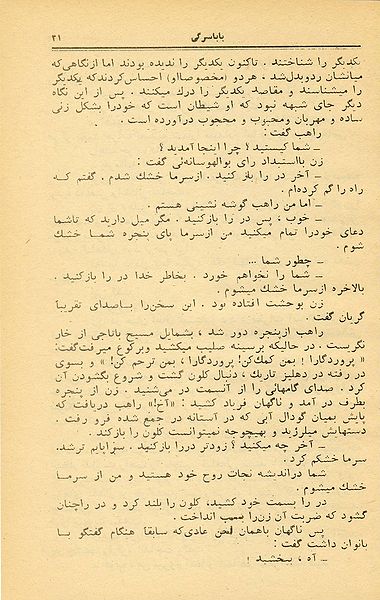 ۳۱ باباسرگی
یکدیگر را شناختند . تاکنون یکدیگر را ندیده بودند اما ازنگاهی‌که
میانشان ردوبدل‌شد ، هردو (مخصوصااو) احساس‌کردند‌که یکدیگر
را میشناسند و مقاصد یکدیگر را درك میکنند . پس از این نگاه
دیگر جای شبهه نبود که او شیطان است که خودرا بشکل زنی
ساده و مهربان ومحبوب و محجوب درآورده است .
راهب گفت :
ــ شما کیستید ؟ چرا اینجا آمدید ؟
زن بااستبداد رای بوالهوسانه‌ئی گفت :
ــ آخر در را باز کنید . ازسرما خشك شدم . گفتم کـه
راه را گم کرده‌ام .
ــ اما من راهب گوشه نشینی هستم .
ــ خوب ، پس در را بازکنید . مگر میل دارید که تاشما
دعای خودرا تمام میکنید من ازسرما پای پنجره شمـا خشك
شوم .
ــ چطور شما ...
ــ شما را نخواهم خورد . بخاطر خدا در را بازکنید .
بالاخره ازسرما خشك میشوم .
زن بوحشت افتاده بود . این سخن‌را باصدای تقریباً
گریان گفت .
راهب ازپنجره دور شد ، بشمایل مسیح باتاجی از خار
نگریست . در حالیکه برسینه صلیب میکشید وبرکوع میرفت‌گفت:
« پروردگارا ! بمن کمك‌کن! پروردگارا ، بمن ترحم کن! » و بسوی
در رفته در دهلیز تاریك ، دنبال کلون گشت و شروع بگشودن آن
کرد . صدای گامهائی را از آنسمت در می‌شنید . زن از پنجره
بطرف در آمد و ناگهان فریاد کشید : «آخ!» راهب دریافت که
پایش بمیان گودال آبی که در آستانه در جمع شده فرو رفت .
دستهایش میلرزید و بهیچوجه نمیتوانست کلون را بازکند .
ــ آخر چه میکنید ؟ زودتر دررا بازکنید . سراپایم ترشد.
سرما خشکم کرد .
شما دراندیشه نجات روح خود هستید و من از سرمـا
خشك میشوم .
در را بسمت خود کشید، کلون را بلند کرد و در راچنان
گشود که ضربت آن زن‌را بعقب انداخت .
پس ناگهان باهمان لحن عادی‌که سابقا هنگام گفتگو بـا
بانوان داشت گفت :
ــ آه ، ببخشید !